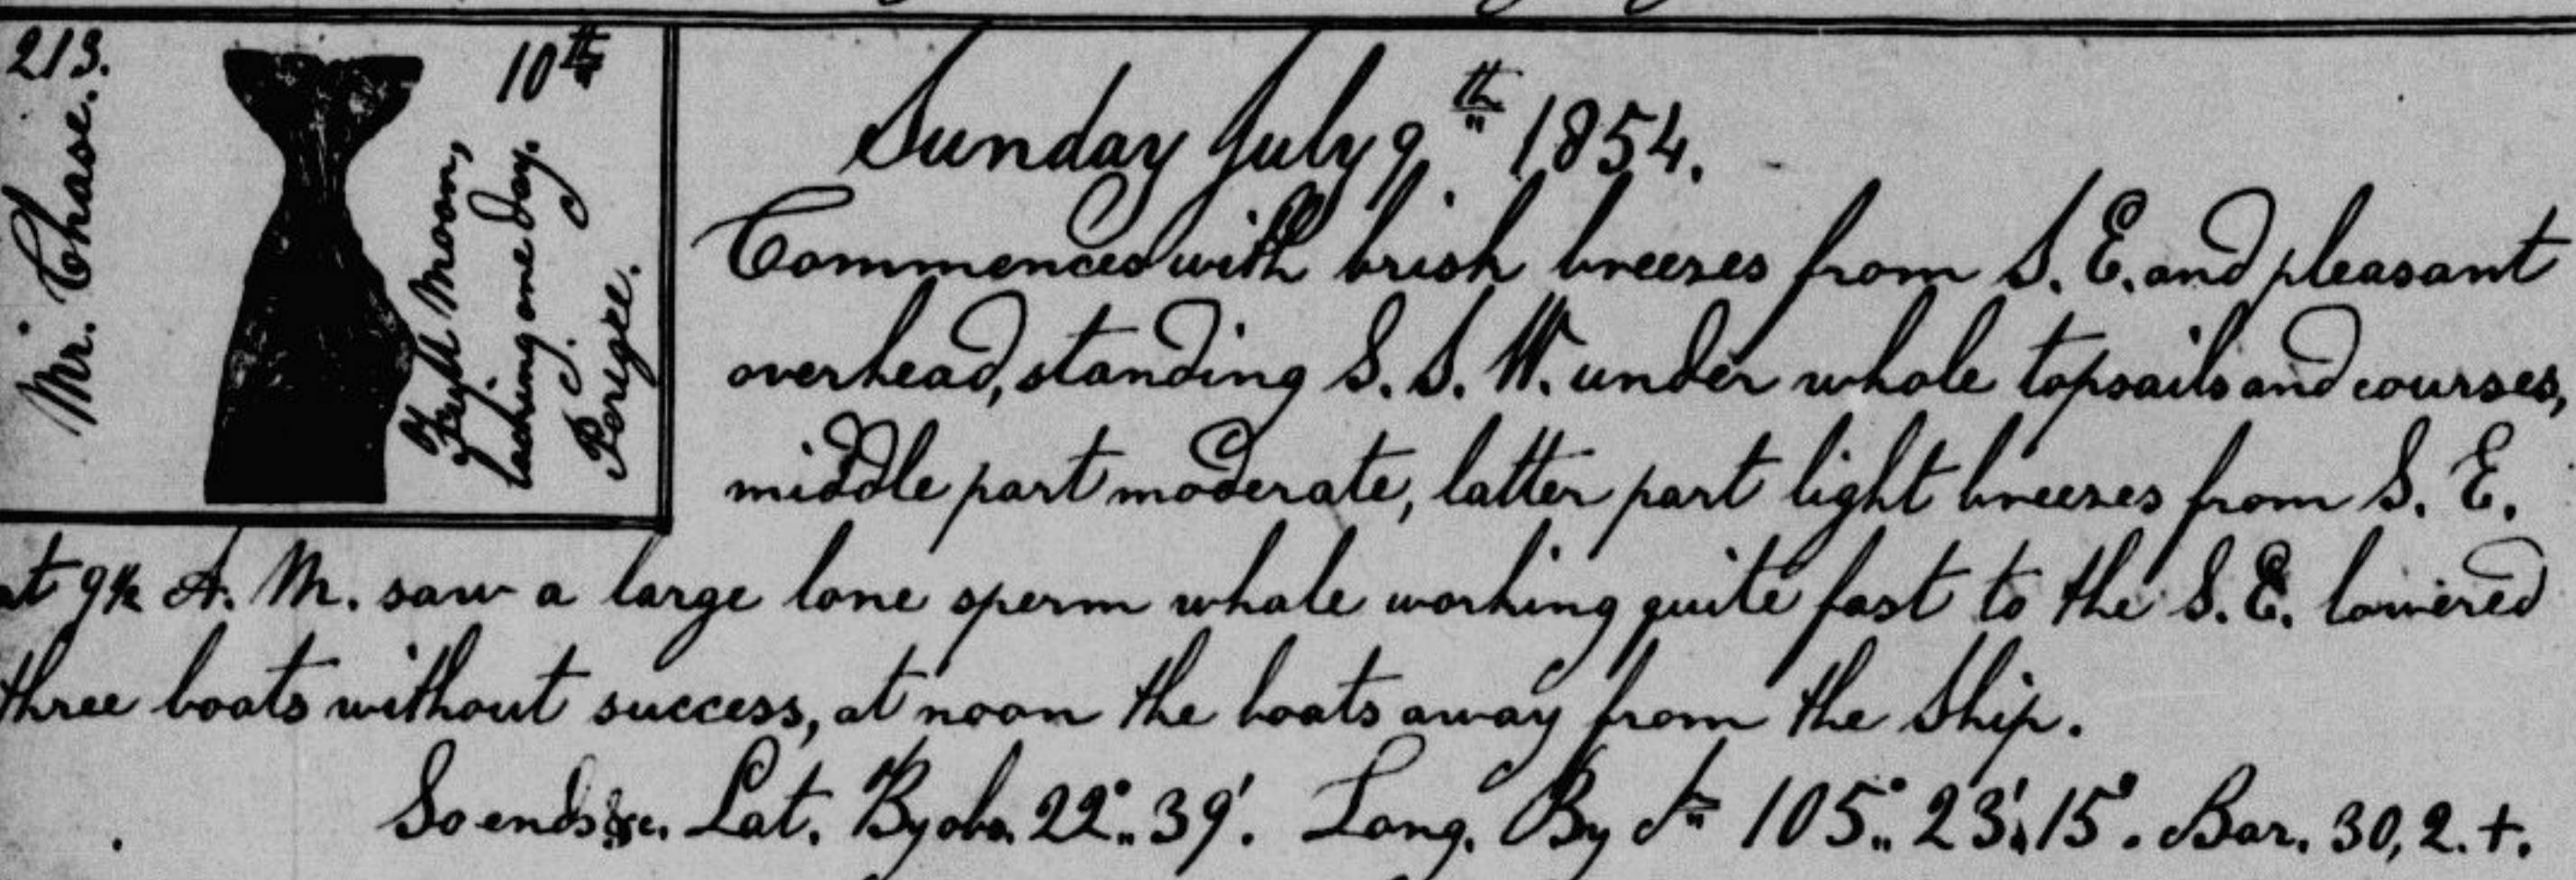 213.
Mr. Chase.
10th
Full Moon,
lacking one day.
Perigee.
Sunday July 9th 1854.
Commences with brisk breezes from S. E. and pleasant
overhead, standing S. S. W. under whole topsails and courses,
middle part moderate, latter part light breezes from S. E.
at 9½ A. M. saw a large lone sperm whale working quite fast to the S. E. lowered
three boats without success, at noon the boats away from the Ship.
So ends &c. Lat. By obs. 22°.. 39'. Long. By 105°.. 23'.. 15". Bar. 30,2. +.